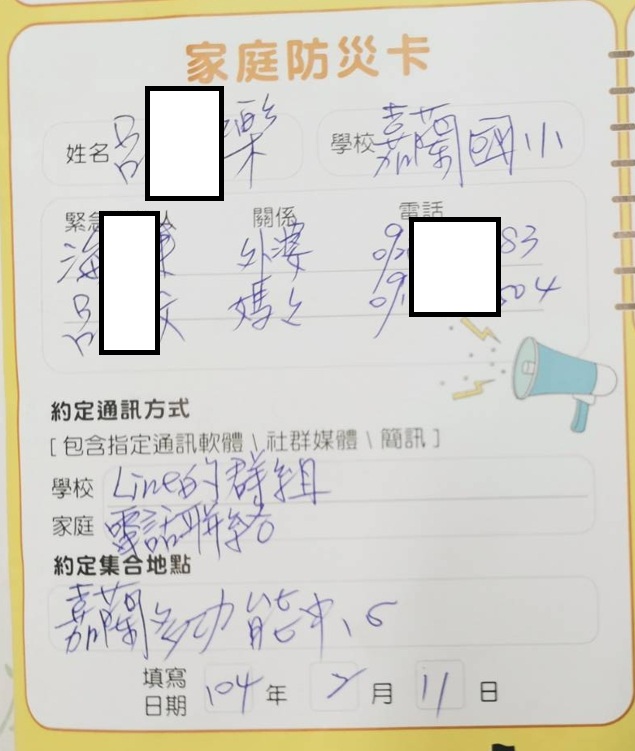 家庭防災卡
姓名 呂 樂 學校 嘉蘭國小
緊急 人 關係 電話
海 外婆 83
呂 文 媽媽 504
約定通訊方式
[包含指定通訊軟體\社群媒體\簡訊]
學校 Line的群組
家庭 電話聯絡
約定集合地點
嘉蘭多功能中心
填寫日期 104年 2月 11日